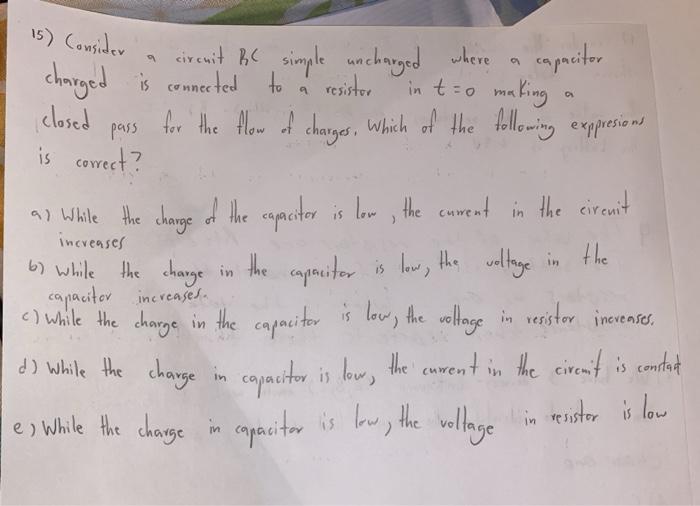 15) Consider a circuit RC simple uncharged where a capacitor
charged is connected to a resistor in t=0 making a
closed pass for the flow of charges. Which of the following exppresions
is correct?
a) While the charge of the capacitor is low, the current in the circuit
increases
b) While the charge in the capacitor is low, the voltage in the
capacitor increases.
c) While the charge in the capacitor is low, the voltage in resistor increases.
d) While the charge in capacitor is low, the current in the circuit is constat
e) While the charge in capacitor is low, the voltage in resistor is low